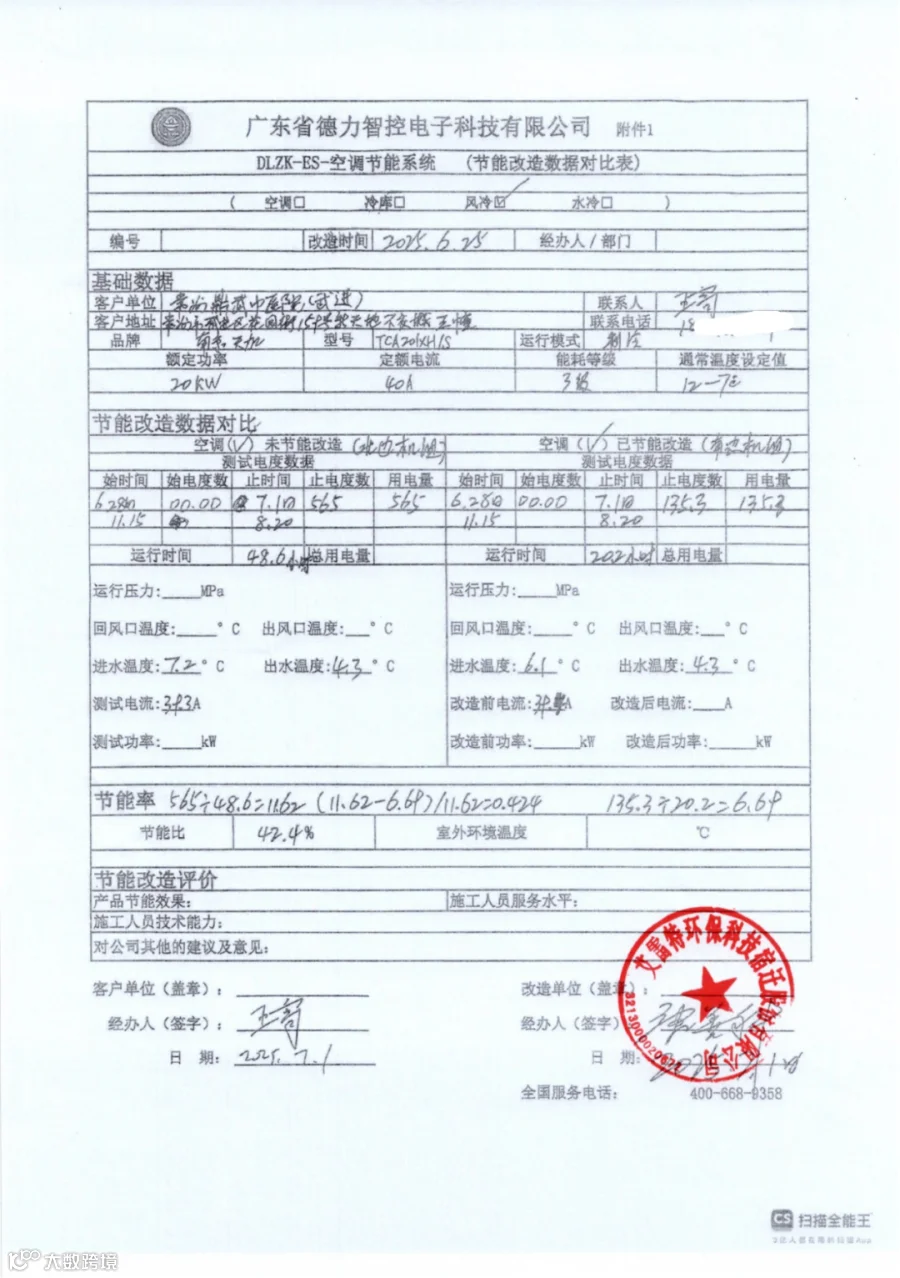 广东省德力智控电子科技有限公司 附件1
DLZK-ES-空调节能系统 (节能改造数据对比表)
( 空调☐ 冷库☐ 风冷☑ 水冷☐ )
编号 改造时间 2025.6.25 经办人/部门
基础数据
客户单位 (武进) 联系人
客户地址 联系电话 18
品牌 型号 TCA201XH/S 运行模式 制冷
额定功率 定额电流 能耗等级 通常温度设定值
20KW 40A 3级 12-7℃
节能改造数据对比
空调(√)未节能改造(北边机组) 空调(√)已节能改造(南边机组)
测试电度数据 测试电度数据
始时间 始电度数 止时间 止电度数 用电量 始时间 始电度数 止时间 止电度数 用电量
6.28日 00.00 7.1日 565 565 6.28日 00.00 7.1日 135.3 135.3
11.15 8.20 11.15 8.20
运行时间 48.6小时 总用电量 运行时间 20.2小时 总用电量
运行压力:____MPa 运行压力:____MPa
回风口温度:____°C 出风口温度:___°C 回风口温度:____°C 出风口温度:___°C
进水温度:7.2°C 出水温度:4.3°C 进水温度:6.1°C 出水温度:4.3°C
测试电流:A 改造前电流:A 改造后电流:____A
测试功率:____kW 改造前功率:____kW 改造后功率:____kW
节能率 565÷48.6=11.62 (11.62-6.69)/11.62=0.424 135.3÷20.2=6.69
节能比 42.4% 室外环境温度 ℃
节能改造评价
产品节能效果: 施工人员服务水平:
施工人员技术能力:
对公司其他的建议及意见:
客户单位(盖章): 改造单位(盖章):
经办人(签字): 经办人(签字)
日 期: 2025.7.1 日 期:
全国服务电话: 400-668-9358
艾雷特环保科技宿迁股份有限公司
CS 扫描全能王
3亿人都在用的扫描App
大数跨境